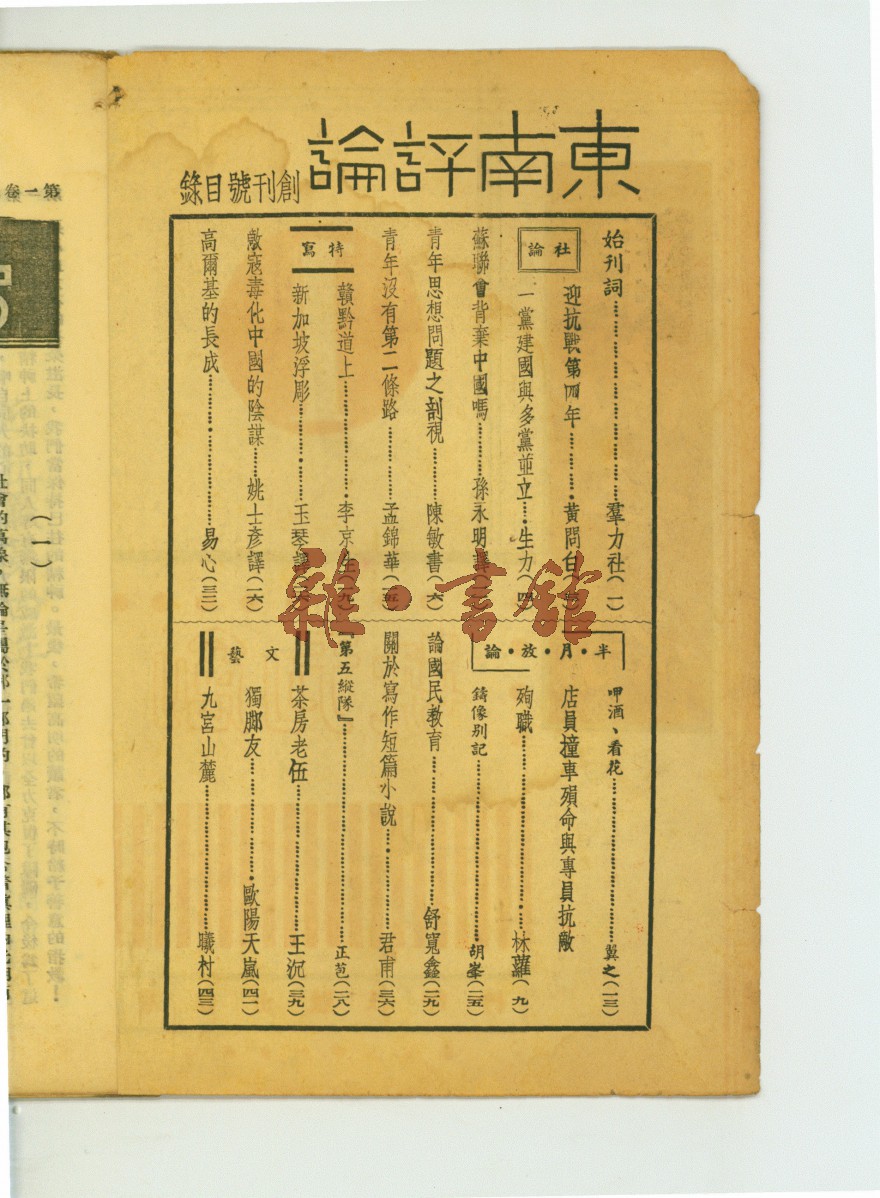 東南評論
創刊號目錄
始刊詞…羣力社(一)
社論
迎抗戰第四年…黃問白
一黨建國與多黨並立…生力(四)
蘇聯會背棄中國嗎…孫永明譯
青年思想問題之剖視…陳敏書(六)
青年沒有第二條路…孟錦華
特寫
贛黔道上…李京生
新加坡浮彫…玉琴譯
敵寇毒化中國的陰謀…姚士彥譯(一六)
高爾基的長成…易心(三二)
半・月・放・論
呷酒、看花…翼之(一三)
店員撞車殞命與專員抗敵
殉職…林蘿(九)
鑄像別記…胡峯(二五)
論國民教育…舒寬鑫(二九)
關於寫作短篇小說…君甫(三六)
『第五縱隊』…正苞(二八)
文藝
茶房老伍…王沉(三九)
獨脚友…歐陽天嵐(四一)
九宮山麓…曦村(四三)
雜・書館
第一卷
(一)